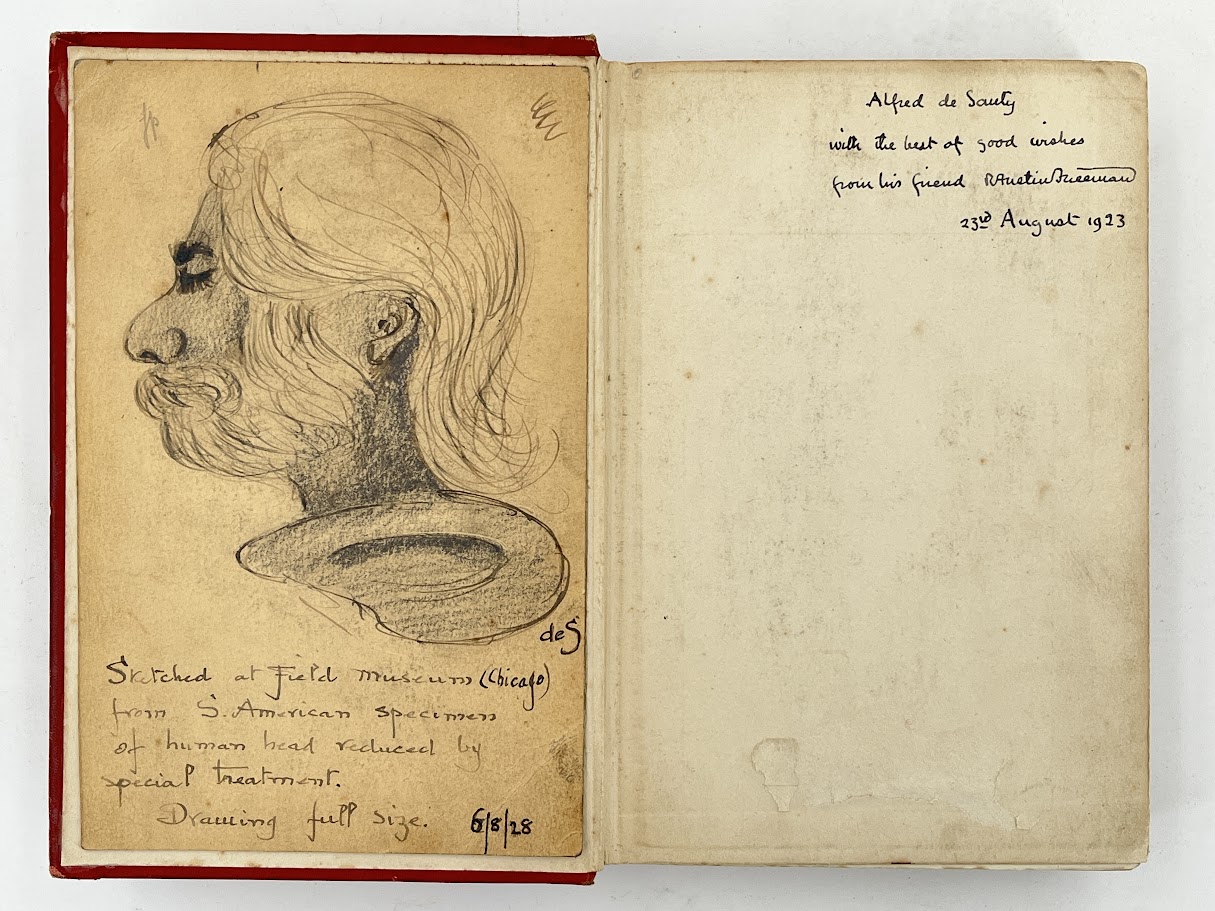 deS
Sketched at Field Museum (Chicago)
from S. American specimen
of human head reduced by
special treatment.
Drawing full size. 6/8/28
Alfred de Sauty
with the best of good wishes
from his friend R Austin Freeman
23rd August 1923